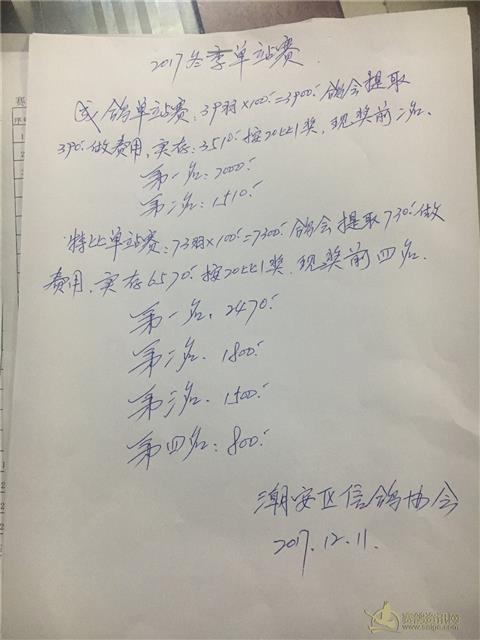 2017冬季单站赛
成鸽单站赛:39羽×100=3900.鸽会提取
390.做费用,实存:3510.按20比1奖,现奖前二名.
第一名:2000.
第二名:1510.
特比单站赛:73羽×100=7300.鸽会提取730.做
费用,实存6570.按20比1奖,现奖前四名.
第一名:2470.
第二名:1800.
第三名:1500.
第四名:800.
潮安区信鸽协会
2017.12.11.
赛鸽资讯网